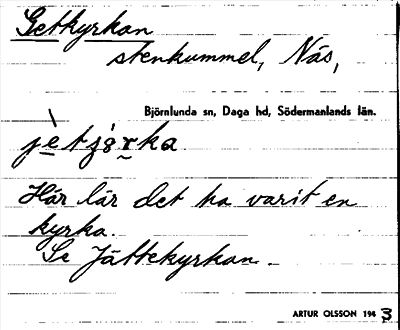 Getkyrkan
stenkummel, Näs,
Björnlunda sn, Daga hd, Södermanlands län.
Här lär det ha varit en
kyrka.
Se Jättekyrkan.
ARTUR OLSSON 1943